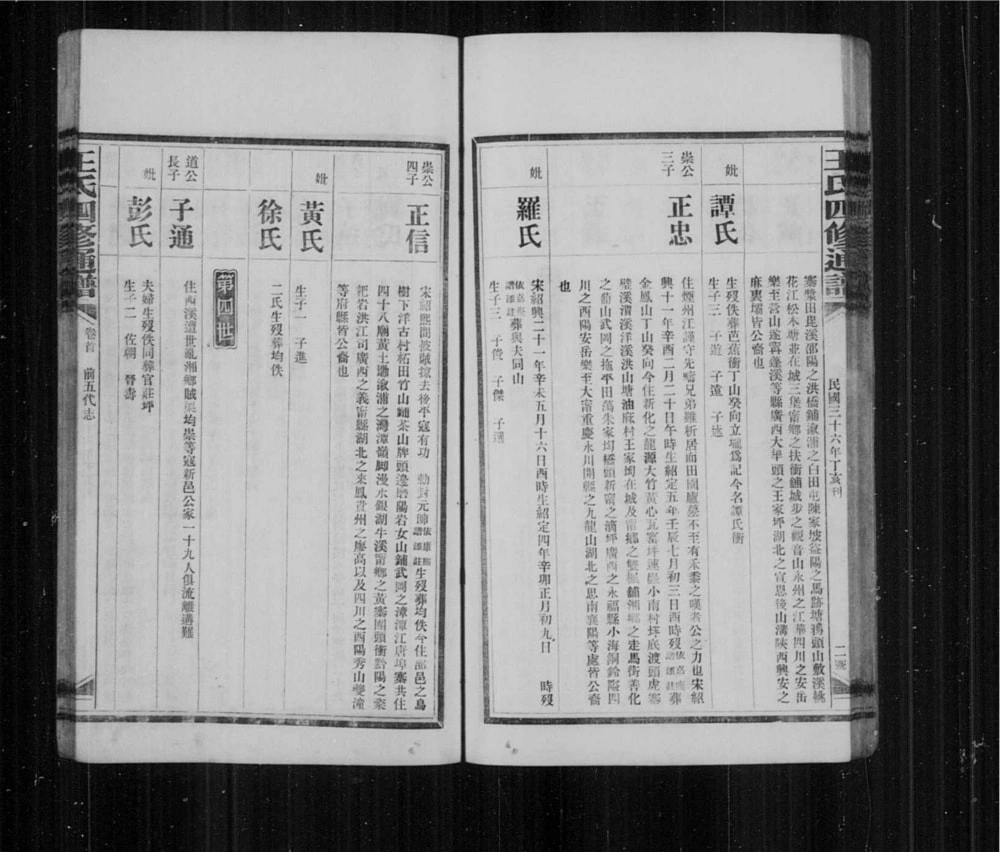 王氏四修通譜
民國三十六年丁亥刊
寨槳田毘溪邵陽之洪橋鋪漵浦之白田屯陳家坡益陽之馬跡塘鴉頭山敷溪桃
花江松木塘並在城三堡甯鄉之扶衝鋪城步之觀音山永州之江華四川之安岳
樂至營山遂寧蓬溪等縣廣西大旱頭之王家坪湖北之宣恩後山溝陝西興安之
麻裏壩皆公裔也
妣
譚氏
生歿佚葬芭蕉衝丁山癸向立壠爲記今名譚氏衝
生子三 子遊 子遠 子
崇公
三子
正忠
住煙州江謹守先疇兄弟雖析居而田園廬墓不至有禾黍之嘆者公之力也宋紹
興十一年辛酉二月二十日午時生紹定五年壬辰七月初三日酉時歿依譜源註葬
金鳳山丁山癸向今住新化之龍源大竹黃心瓦窰坪連 小南村坪底渡頭虎寨
壁溪濆溪洋溪洪山塘油麻村王家坳在城及甯鄉之雙 鋪湘鄉之走馬街善化
之 山武岡之拖平田萬朱家坳橋頭新甯之 坪廣西之永福縣小海銅鈴 四
川之酉陽安岳樂至大甯重慶永川開縣之九龍山湖北之思南襄陽等處皆公裔
也
妣
羅氏
宋紹興二十一年辛未五月十六日酉時生紹定四年辛卯正月初九日 時歿
依 譜源註葬與夫同山
生子三 子俊 子傑 子選
崇公
四子
正信
宋紹熙間被賊掠去後平寇有功 勅封元帥依 譜源註生歿葬均佚今住邵邑之鳥
樹下洋古村柘田竹山鋪茶山牌頭邊 陽岩女山鋪武岡之漳潭江唐埠寨共住
四十八廟黃土坳漵浦之灣潭嶺腳漫水銀湖牛溪甯鄉之黃寨團頭衝黔陽之
岩洪江司廣西之義甯縣湖北之來鳳貴州之廖高以及四川之酉陽秀山夔潼
等府縣皆公裔也
妣
黃氏
生子一 子進
徐氏
二氏生歿葬均佚
第四世
道公
長子
子通
住西溪遭世亂湘鄉賊渠均崇等寇新邑公家一十九人俱流離遘難
妣
彭氏
夫婦生歿佚同葬官莊坪
生子二 佐朝 晉壽
王氏四修通譜
卷首 前五代志